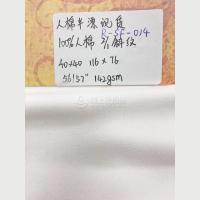 人棉半漂现货
R-SF-014
100%人棉 2/1斜纹
40×40 116×76
56/57" 142gsm